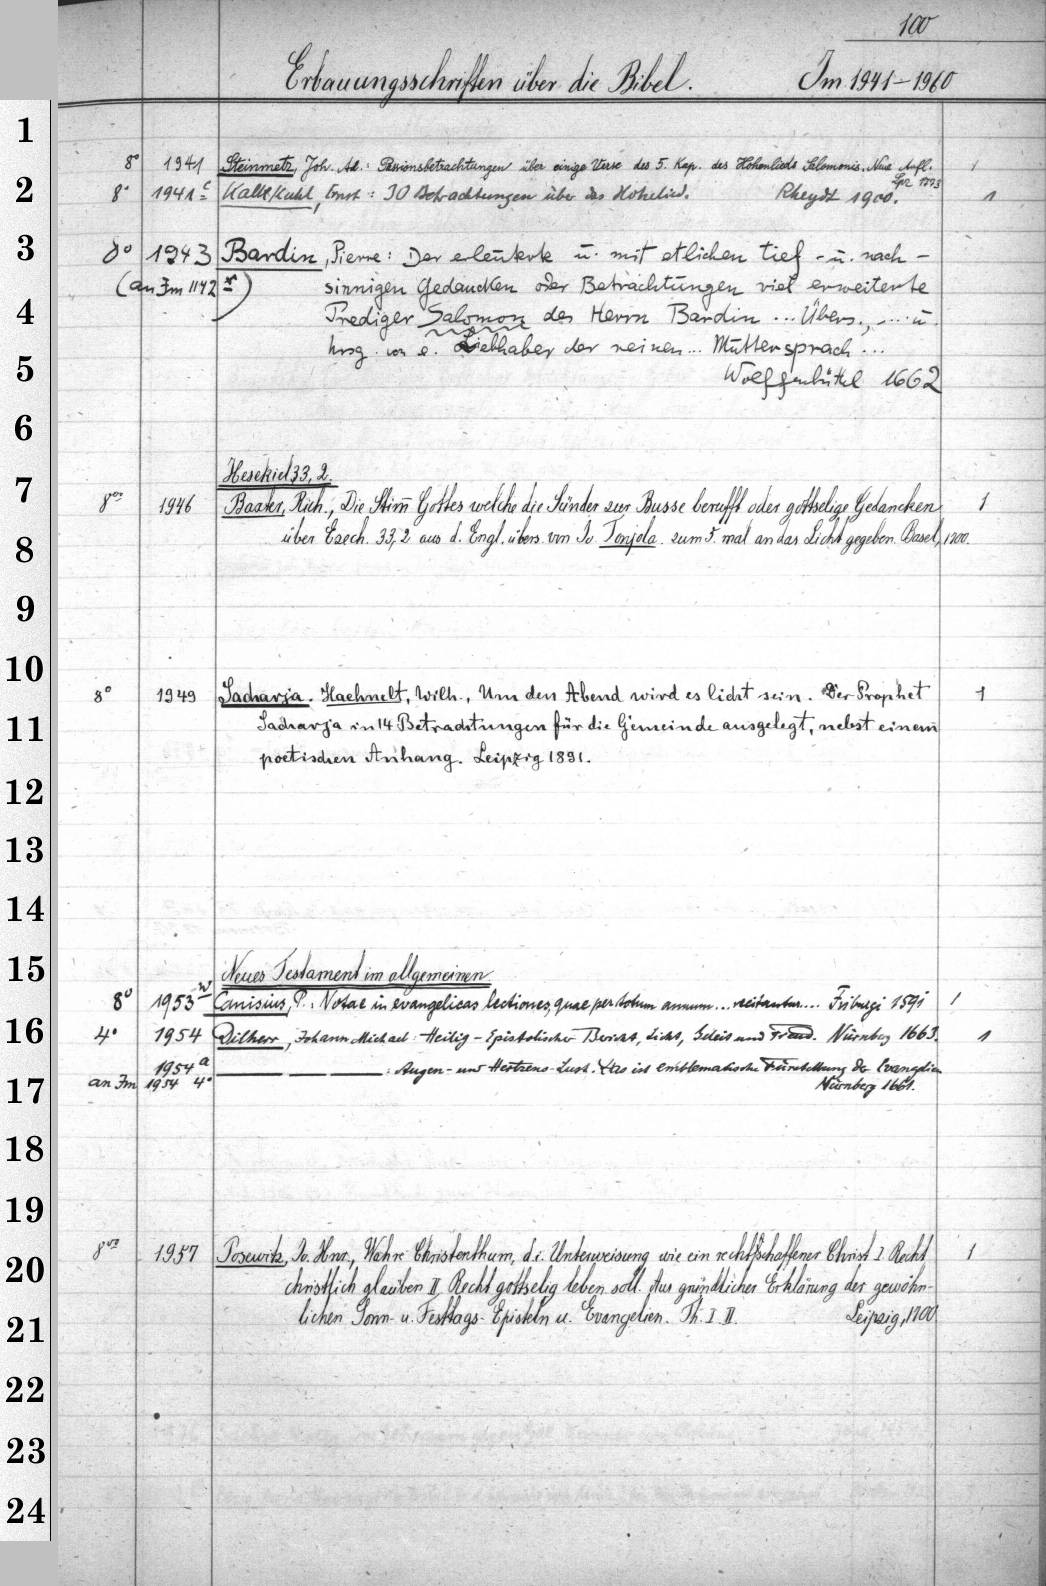 100
Erbauungsschriften über die Bibel. Im 1941-1960
1
8° 1941 Steinmetz, Joh. Ad.: Passionsbetrachtungen über einige Verse des 5. Kap. des Hohenlieds Salomonis. Neue Aufl. 1
Lpz
2
8° 1941 c Kaltkuhl, Ernst: 30 Betrachtungen über das Hohelied. Rheydt 1900. 1
3
8° 1943 Bardin, Pierre: Der erleuterte u. mit etlichen tief- u. nach-
(an Im 1142 x) sinnigen Gedancken oder Betrachtungen viel erweiterte
4
Prediger Salomon des Herrn Bardin ... Übers., ... u.
hrsg. von e. Liebhaber der reinen ... Muttersprach ...
5
Wolffenbüttel 1662
6
Hesekiel 33, 2.
7
8vo 1946 Baxter, Rich., Die Stim̄ Gottes welche die Sünder zur Busse berufft oder gottselige Gedancken 1
8
über Ezech. 33,2 aus d. Engl. übers. von Jo. Tonjola. zum 5. mal an das Licht gegeben. Basel, 1700.
9
10
8° 1949 Sacharja. Haehnelt, Wilh., Um den Abend wird es licht sein. Der Prophet 1
11
Sacharja in 14 Betrachtungen für die Gemeinde ausgelegt, nebst einem
poetischen Anhang. Leipzig 1891.
12
13
14
15
Neues Testament im allgemeinen
8° 1953 w Canisius, P.: Notae in evangelicas lectiones, quae per totum annum ... recitantur ... Friburgi 1591 1
16
4° 1954 Dilherr, Johann Michael: Heilig-Epistolischer Bericht, Licht, Geleit und Freud. Nürnberg 1663. 1
1954 a
an Im 1954 4° — — — : Augen- und Hertzens-Lust. Das ist emblematische Fürstellung der Evangelien
17
Nürnberg 1661.
18
19
8vo 1957 Posewitz, Jo. Hnr., Wahre Christenthum, d.i. Unterweisung wie ein rechtschaffener Christ I Recht 1
20
christlich glauben II. Recht gottselig leben soll. Aus gründlicher Erklärung der gewöhn-
lichen Sonn- u. Festtags-Episteln u. Evangelien. Th. I. II. Leipzig, 1700.
21
22
23
24